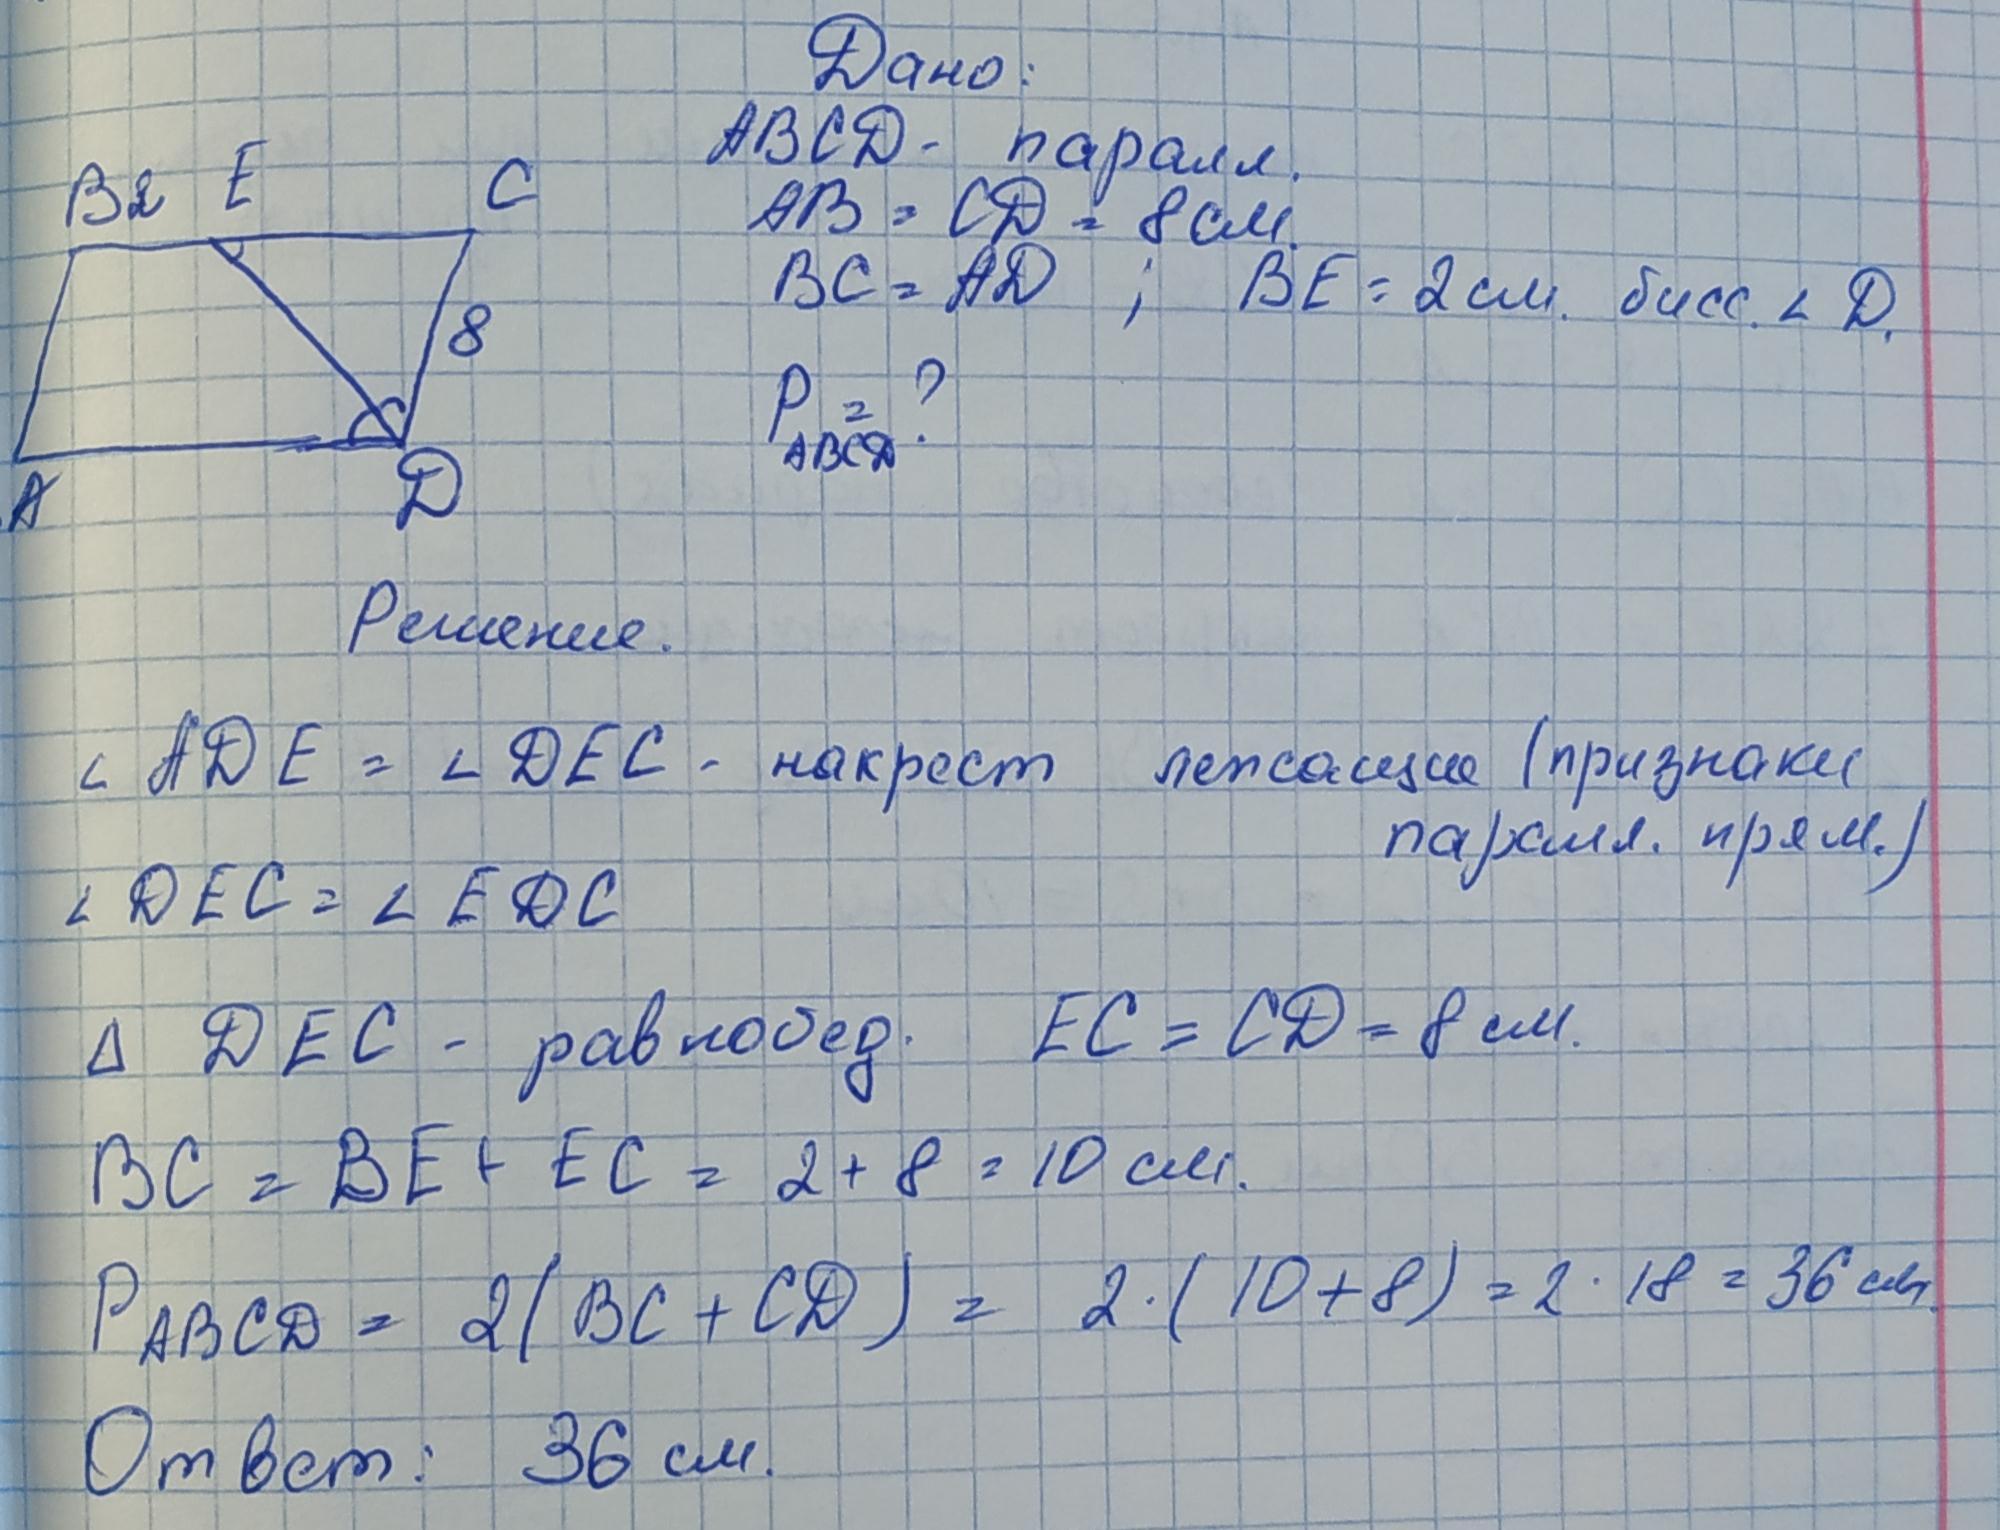 Дано:
ABCD - паралл.
AB = CD = 8 см.
BC = AD ; BE = 2 см. бисс. ∠ D.
P ABCD = ?
B 2 E C
8
A D
Решение.
∠ ADE = ∠ DEC - накрест лежащие (признаки
паралл. прям.)
∠ DEC = ∠ EDC
Δ DEC - равнобед. EC = CD = 8 см.
BC = BE + EC = 2 + 8 = 10 см.
P ABCD = 2 (BC + CD) = 2 · (10 + 8) = 2 · 18 = 36 см.
Ответ: 36 см.